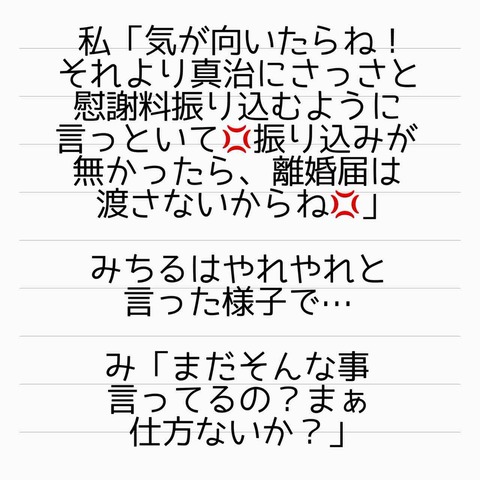 私「気が向いたらね！
それより真治にさっさと
慰謝料振り込むように
言っといて💢振り込みが
無かったら、離婚届は
渡さないからね💢」
みちるはやれやれと
言った様子で…
み「まだそんな事
言ってるの？まぁ
仕方ないか？」